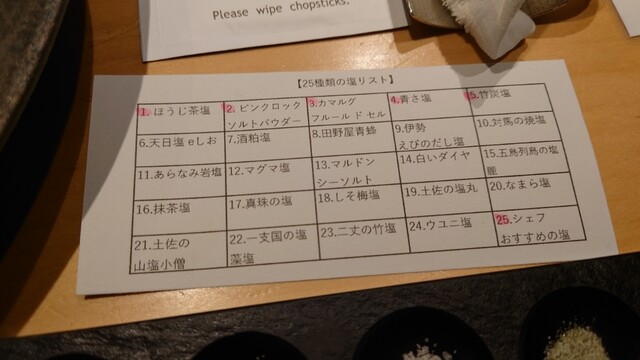 Please wipe chopsticks.
【25種類の塩リスト】
1. ほうじ茶塩
2. ピンクロック
ソルトパウダー
3.カマルグ
フルール ド セル
4.青さ塩
5.竹炭塩
6.天日塩 eしお
7.酒粕塩
8.田野屋青蜂
9.伊勢
えびのだし塩
10.対馬の焼塩
11.あらなみ岩塩
12.マグマ塩
13.マルドン
シーソルト
14.白いダイヤ
15.五島列島の塩
16.抹茶塩
17.真珠の塩
18.しそ梅塩
19.土佐の塩丸
20.なまら塩
21.土佐の
山塩小僧
22.一支国の塩
藻塩
23.二丈の竹塩
24.ウユニ塩
25.シェフ
おすすめの塩